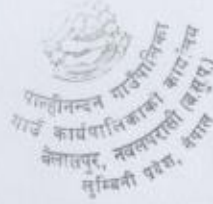 पाल्हीनन्दन गाउँपालिका
गाउँ कार्यपालिकाको कार्यालय
बेलासपुर, नवलपरासी (ब.सु.प.)
लुम्बिनी प्रदेश, नेपाल